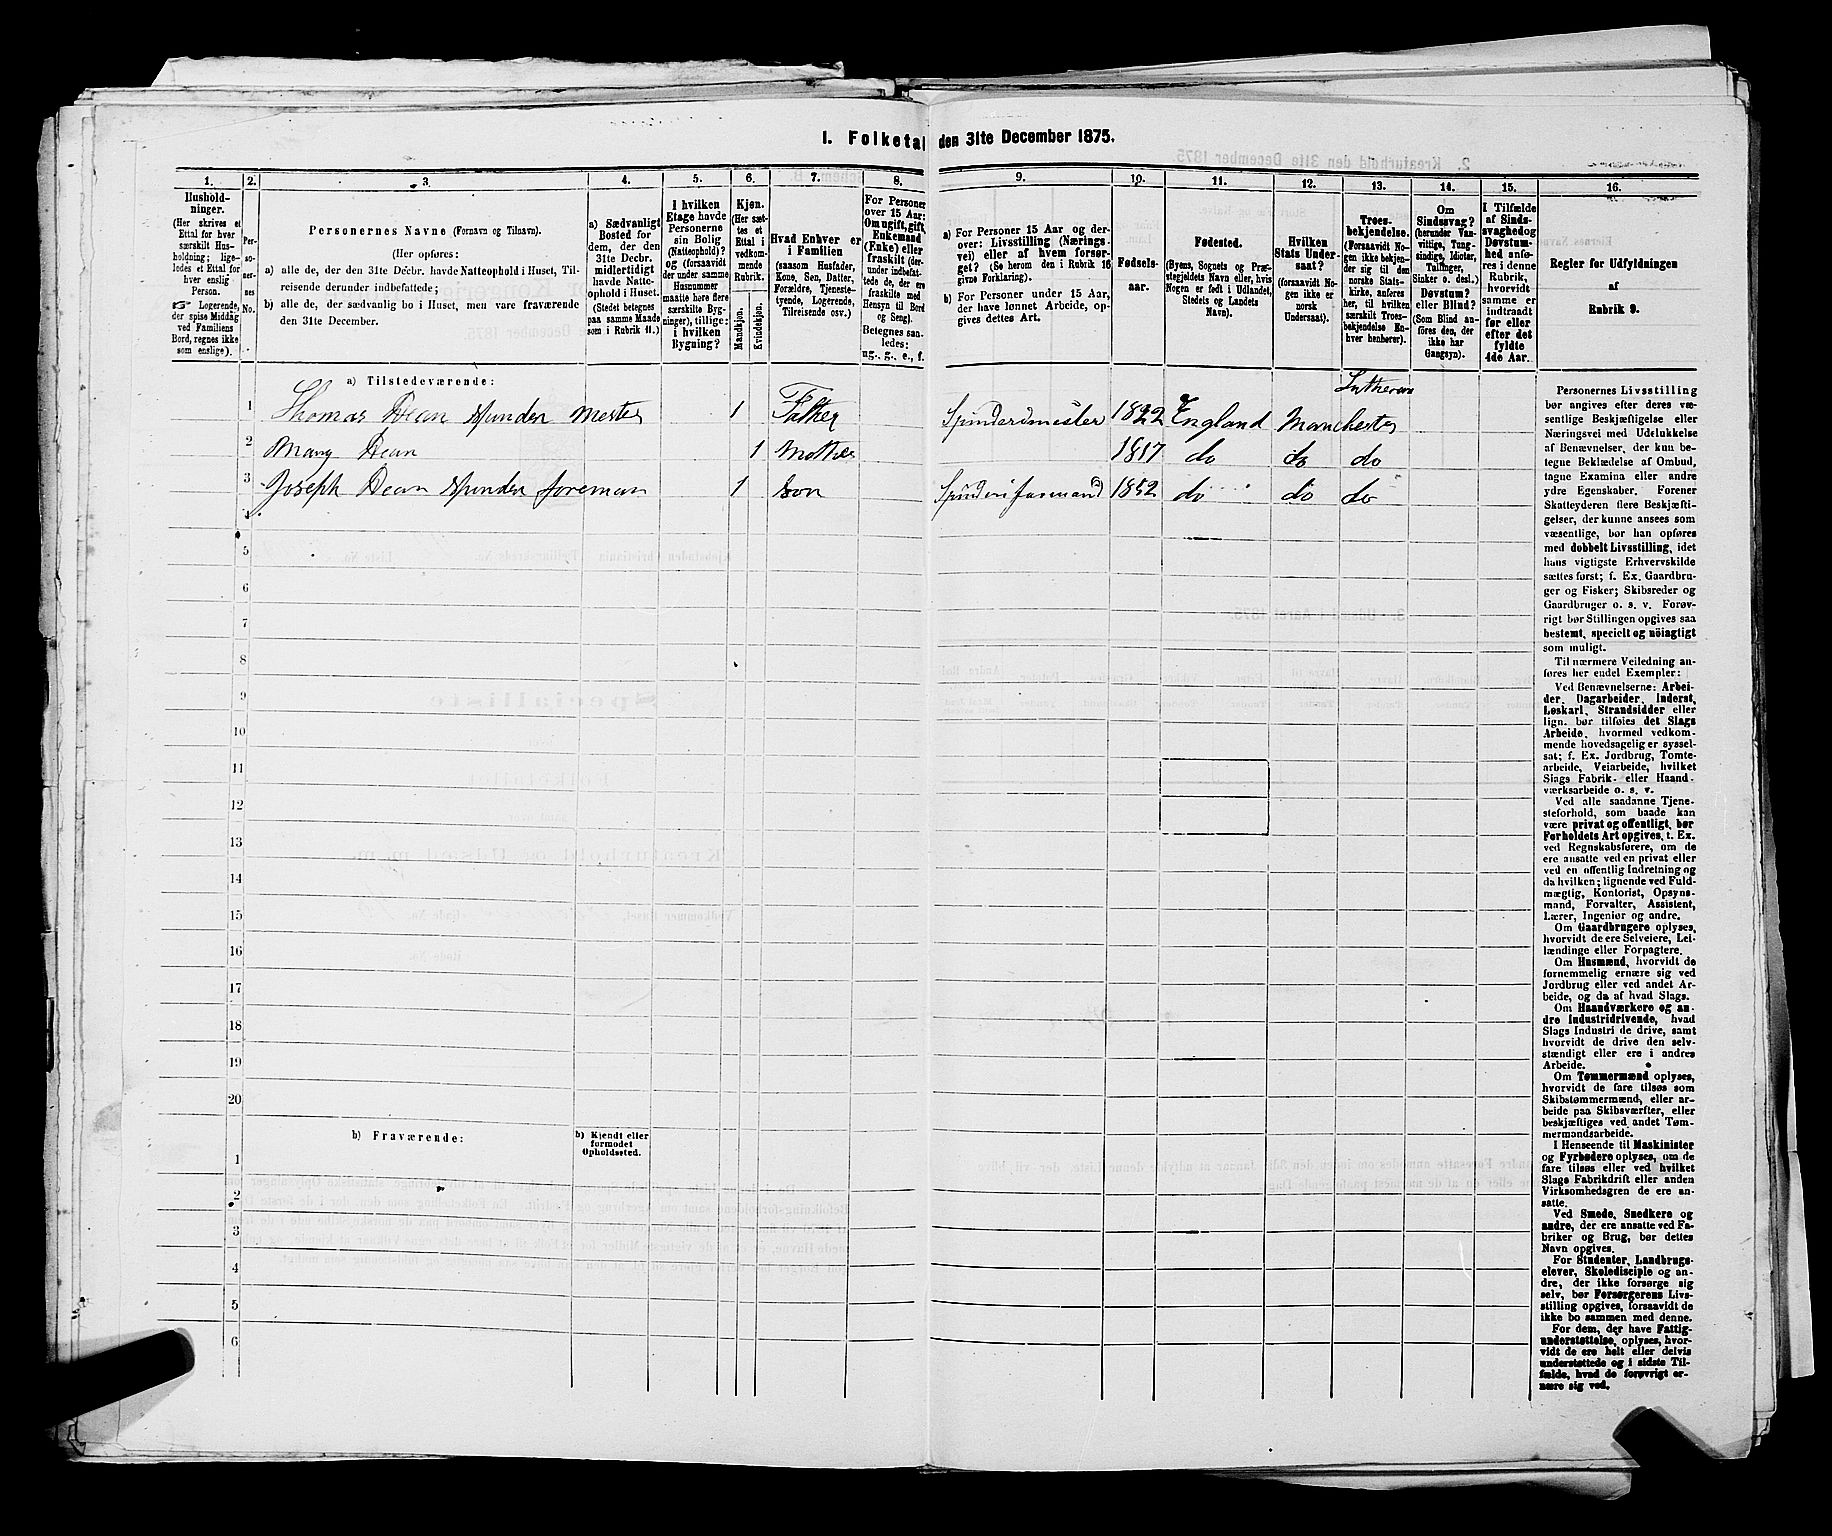 I. Folketal den 31te December 1875.
1. 2. 3. 4. 5. 6. 7. 8. 9. 10. 11. 12. 13. 14. 15. 16.
Husholdninger.
(Her skrives et
Ettal for hver
særskilt Husholdning; ligeledes
et Ettal for
hver enslig
Person.
☞ Logerende,
der spise Middag
ved Familiens
Bord, regnes ikke
som enslige).
Personernes
No.
Personernes Navne (Fornavn og Tilnavn).
(Her opføres:
a) alle de, der den 31te Decbr. havde Natteophold i Huset, Tilreisende derunder indbefattede;
b) alle de, der sædvanlig bo i Huset, men vare fraværende
den 31te December.
a) Sædvanligt
Bosted for
dem, der den
31te Decbr.
midlertidigt
havde Natteophold
i Huset.
(Stedet betegnes
paa samme Maade
som i Rubrik 11.)
I hvilken
Etage havde
Personerne
sin Bolig
(Natteophold)?
og (forsaavidt
der under samme
Husnummer
maatte høre flere
særskilte Bygninger),
tillige:
i hvilken
Bygning?
Kjøn.
(Her sættes
et
Ettal i
vedkommende
Rubrik.
Mandkjøn.
Kvindekjøn.
Hvad Enhver er
i Familien
(saasom Husfader,
Kone, Søn, Datter,
Forældre, Tjenestetyende,
Logerende,
Tilreisende osv.)
For Personer
over 15 Aar:
Om ugift, gift,
Enkemand
(Enke) eller
fraskilt (derunder
indbefattede
de, der ere
fraskilte med
Hensyn til Bord
og Seng).
Betegnes saaledes:
ug., g., e., f.
a) For Personer 15 Aar og derover:
Livsstilling (Næringsvei)
eller af hvem forsørget?
(Se herom den i Rubrik 16
givne Forklaring).
b) For Personer under 15 Aar,
der have lønnet Arbeide, opgives
dettes Art.
Fødselsaar.
Fødested.
(Byens, Sognets og Præstegjeldets
Navn eller, hvis
Nogen er født i Udlandet,
Stedets og Landets
Navn).
Hvilken
Stats Undersaat?
(forsaavidt Nogen
ikke er
norsk
Undersaat).
Troesbekjendelse.
(Forsaavidt Nogen
ikke bekjender
sig til den
norske Statskirke,
anføres
her, til hvilken
særskilt Troesbekjendelse
Enhver
henhører).
Om
Sindssvag?
(herunder Vanvittige,
Tungsindige,
Idioter,
Tullinger,
Sinker o. desl.)
Døvstum?
eller Blind?
(Som Blind anføres
den, der
ikke har
Gangsyn).
I Tilfælde
af Sindssvaghed
og
Døvstumhed
anføres
i denne
Rubrik,
hvorvidt
samme er
indtraadt
før eller
efter det
fyldte
4de Aar.
Regler for Udfyldningen
af
Rubrik 9.
a) Tilstedeværende:
Lutheran
1 Thomas Dean Spinderi Mester 1 Father Spinderimester 1822 England Manchester
2 Mary Dean 1 Mother 1817 do do do
3 Joseph Dean Spinderi foreman 1 Son Spinderiformand 1852 do do do
4
5
6
7
8
9
10
11
12
13
14
15
16
17
18
19
20
b) Fraværende:
b) Kjendt eller
formodet
Opholdssted.
1
2
3
4
5
6
Personernes Livsstilling
bør angives efter deres væsentlige
Beskjæftigelse eller
Næringsvei med Udelukkelse
af Benævnelser, der kun betegne
Beklædelse af Ombud,
tagne Examina eller andre
ydre Egenskaber. Forener
Skatteyderen flere Beskjæftigelser,
der kunne ansees som
væsentlige, bør han opføres
med dobbelt Livsstilling, idet
hans vigtigste Erhvervskilde
sættes først; f. Ex. Gaardbruger
og Fisker; Skibsreder og
Gaardbruger o. s. v. Forøvrigt
bør Stillingen opgives saa
bestemt, specielt og nöiagtigt
som muligt.
Til nærmere Veiledning anføres
her endel Exempler:
Ved Benævnelserne: Arbeider,
Dagarbeider, Inderst,
Løskarl, Strandsidder eller
lign. bør tilføies det Slags
Arbeide, hvormed vedkommende
hovedsagelig er sysselsat;
f. Ex. Jordbrug, Tomtearbeide,
Veiarbeide, hvilket
Slags Fabrik- eller Haandværksarbeide
o. s. v.
Ved alle saadanne Tjenesteforhold,
som baade kan
være privat og offentligt, bør
Forholdets Art opgives, t. Ex.
ved Regnskabsførere, om de
ere ansatte ved en privat eller
ved en offentlig Indretning og
da hvilken; lignende ved Fuldmægtig,
Kontorist, Opsynsmand,
Forvalter, Assistent,
Lærer, Ingeniør og andre.
Om Gaardbrugere oplyses,
hvorvidt de ere Selveiere, Leilændinge
eller Forpagtere.
Om Husmænd, hvorvidt de
fornemmelig ernære sig ved
Jordbrug eller ved andet Arbeide,
og da af hvad Slags.
Om Haandværkere og andre
Industridrivende, hvad
Slags Industri de drive, samt
hvorvidt de drive den selvstændigt
eller ere i andres
Arbeide.
Om Tømmermænd oplyses,
hvorvidt de fare tilsøs som
Skibstømmermænd, eller arbeide
paa Skibsværfter, eller
beskjæftiges ved andet Tømmermandsarbeide.
I Henseende til Maskinister
og Fyrbødere oplyses, om de
fare tilsøs eller ved hvilket
Slags Fabrikdrift eller anden
Virksomhedsgren de ere ansatte.
Ved Smede, Snedkere og
andre, der ere ansatte ved Fabriker
og Brug, bør dettes
Navn opgives.
For Studenter, Landbrugselever,
Skoledisciple og andre,
der ikke forsørge sig
selv, bør Forsørgerens Livsstilling
opgives, forsaavidt de
ikke bo sammen med denne.
For dem, der have Fattigunderstøttelse,
oplyses, hvorvidt
de ere helt eller delvis
understøttede og i sidste Tilfælde,
hvad de forøvrigt ernære
sig ved.